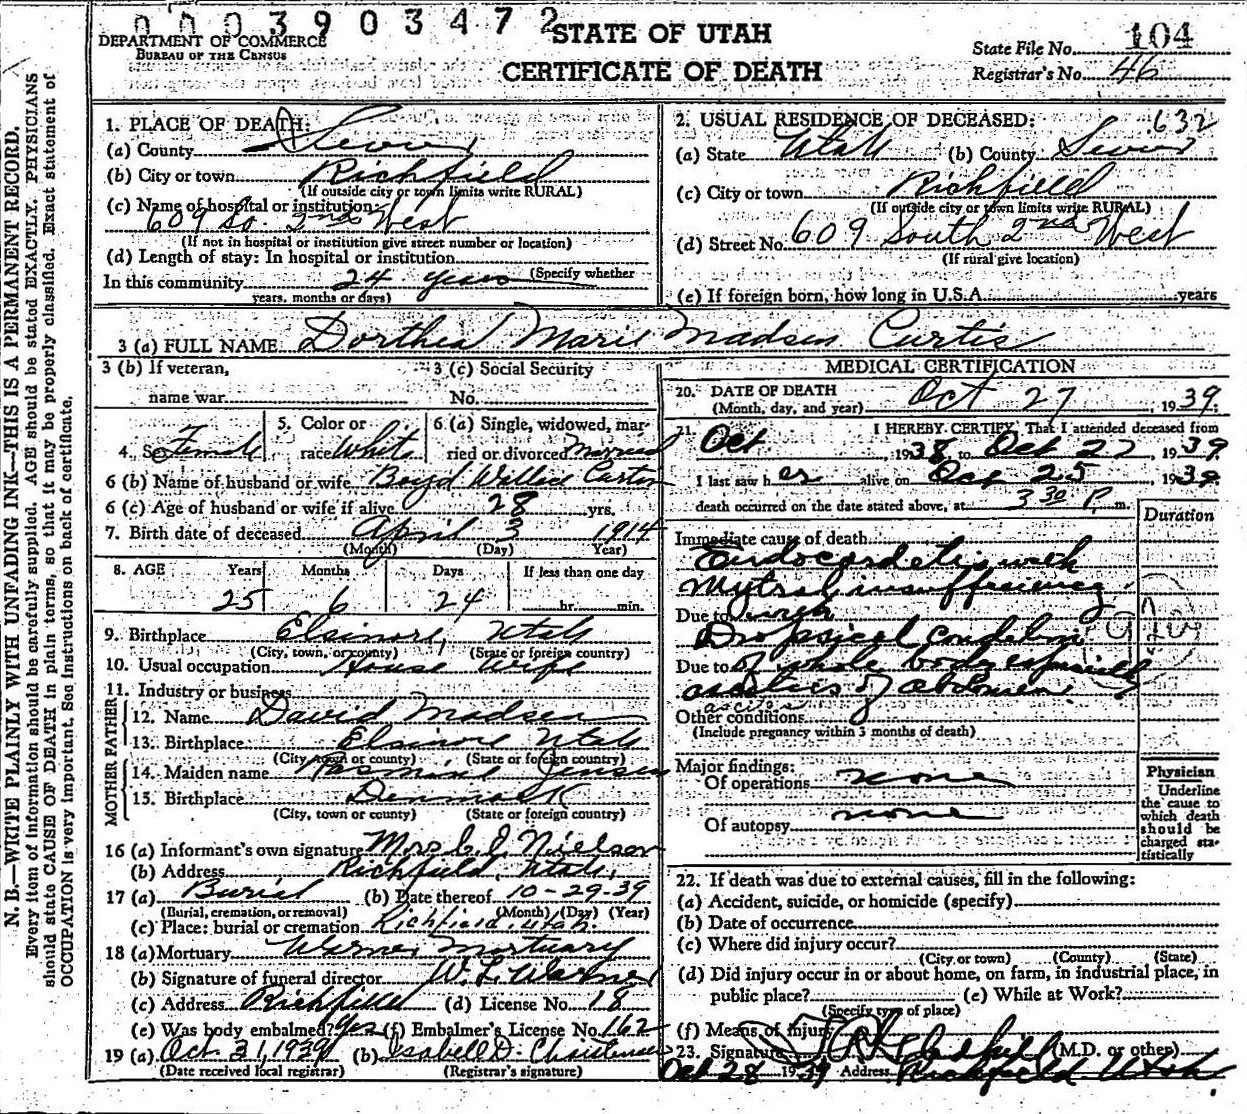 0003903472
DEPARTMENT OF COMMERCE
BUREAU OF THE CENSUS
STATE OF UTAH
CERTIFICATE OF DEATH
State File No. 104
Registrar's No. 46
N. B.—WRITE PLAINLY WITH UNFADING INK—THIS IS A PERMANENT RECORD.
Every item of information should be carefully supplied. AGE should be stated EXACTLY. PHYSICIANS
should state CAUSE OF DEATH in plain terms, so that it may be properly classified. Exact statement of
OCCUPATION is very important. See instructions on back of certificate.
1. PLACE OF DEATH:
(a) County Sevier
(b) City or town Richfield
(If outside city or town limits write RURAL)
(c) Name of hospital or institution:
609 So. 2nd West
(If not in hospital or institution give street number or location)
(d) Length of stay: In hospital or institution
(Specify whether
In this community 24 years
years, months or days)
2. USUAL RESIDENCE OF DECEASED: 632
(a) State Utah (b) County Sevier
(c) City or town Richfield
(If outside city or town limits write RURAL)
(d) Street No. 609 South 2nd West
(If rural give location)
(e) If foreign born, how long in U.S.A. years
3 (a) FULL NAME Dorthea Marie Madsen Curtis
3 (b) If veteran,
name war
3 (c) Social Security
No.
4. Sex Female
5. Color or
race White
6 (a) Single, widowed, mar-
ried or divorced Married
6 (b) Name of husband or wife Boyd Curtis
6 (c) Age of husband or wife if alive 28 yrs.
7. Birth date of deceased April 3 1914
(Month) (Day) Year)
8. AGE Years Months Days If less than one day
25 6 24 hr. min.
9. Birthplace Elsinore, Utah
(City, town, or county) (State or foreign country)
10. Usual occupation House Wife
11. Industry or business
FATHER
12. Name David Madsen
13. Birthplace Elsinore Utah
(City, town or county) (State or foreign country)
MOTHER
14. Maiden name Jensen
15. Birthplace Denmark
(City, town or county) (State or foreign country)
16 (a) Informant's own signature Mrs Nielsen
(b) Address Richfield, Utah.
17 (a) Burial (b) Date thereof 10-29-39
(Burial, cremation, or removal) (Month) (Day) (Year)
(c) Place: burial or cremation Richfield, Utah.
18 (a) Mortuary Warner Mortuary
(b) Signature of funeral director W. L. Warner
(c) Address Richfield (d) License No. 18
(e) Was body embalmed? Yes (f) Embalmer's License No. 162
19 (a) Oct. 31, 1939 (b) Isabell D. Christensen
(Date received local registrar) (Registrar's signature)
MEDICAL CERTIFICATION
20. DATE OF DEATH
(Month, day, and year) Oct 27, 1939.
21. I HEREBY CERTIFY, That I attended deceased from
Oct, 1938, to Oct 27, 1939
I last saw her alive on Oct 25, 1939
death occurred on the date stated above, at 3 30 P. m.
Duration
Immediate cause of death
Endocardetis with
Mytral insufficiency
Due to with
Dropsical
Due to of whole body especially
of abdomen
ascites
Other conditions
(Include pregnancy within 3 months of death)
Major findings:
Of operations none
Of autopsy none
Physician
Underline
the cause to
which death
should be
charged sta-
tistically
22. If death was due to external causes, fill in the following:
(a) Accident, suicide, or homicide (specify)
(b) Date of occurrence
(c) Where did injury occur?
(City or town) (County) (State)
(d) Did injury occur in or about home, on farm, in industrial place, in
public place? (e) While at Work?
(Specify type of place)
(f) Means of injury
23. Signature (M.D. or other)
Oct 28 1939 Address Richfield Utah